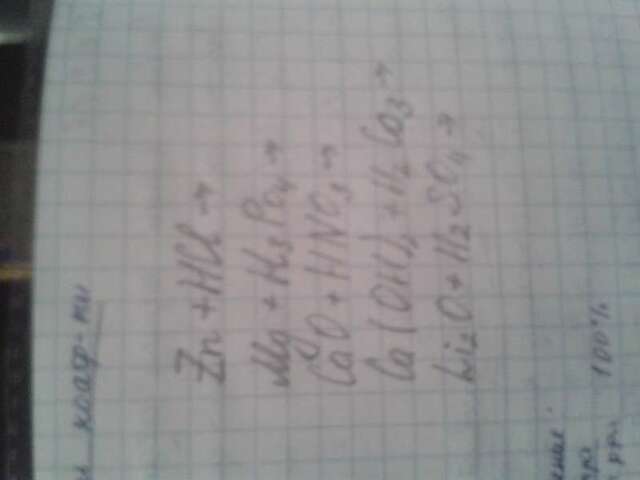 коэф-ты
Zn + HCl →
Mg + H₃PO₄ →
CaO + HNO₃ →
Ca(OH)₂ + H₂CO₃ →
Li₂O + H₂SO₄ →
100%